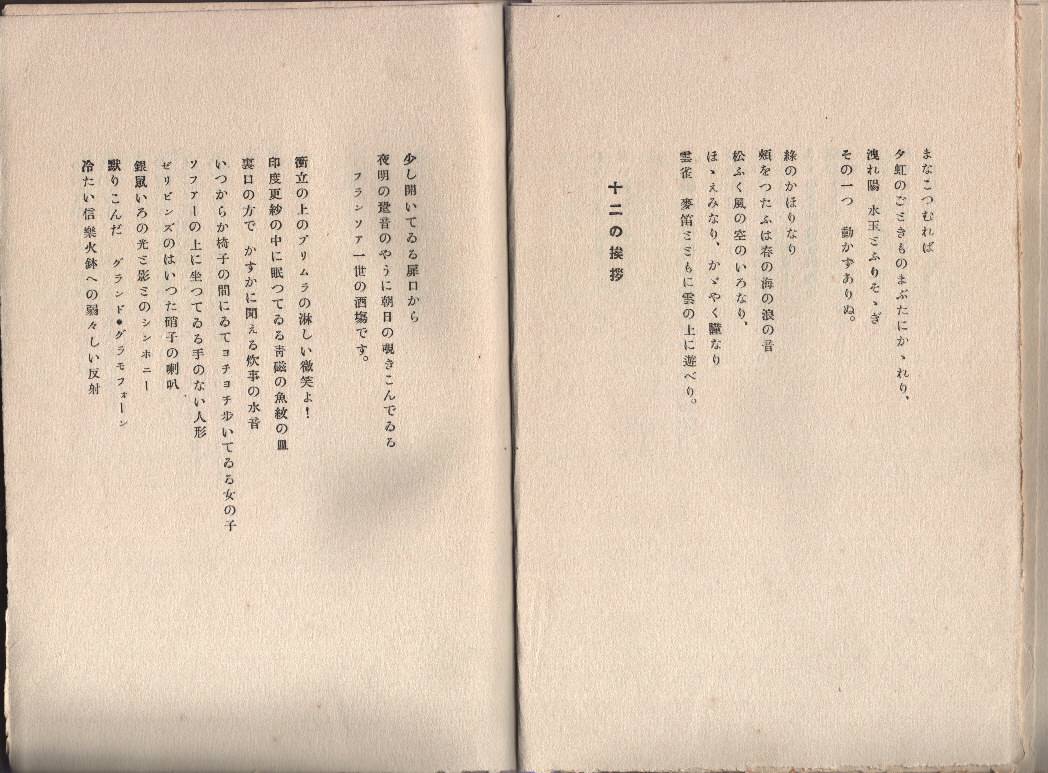 まなこつむれば
夕虹のごときものまぶたにかゝれり、
洩れ陽　水玉とふりそゝぎ
その一つ　動かずありぬ。
綠のかほりなり
頰をつたふは春の海の浪の音
松ふく風の空のいろなり、
ほゝえみなり、かゞやく瞳なり
雲雀　麥笛とともに雲の上に遊べり。
十二の挨拶
少し開いてゐる扉口から
夜明の跫音のやうに朝日の覗きこんでゐる
フランソア一世の酒場です。
衝立の上のプリムラの淋しい微笑よ！
印度更紗の中に眠つてゐる靑磁の魚紋の皿
裏口の方で　かすかに聞える炊事の水音
いつからか椅子の間にゐてヨチヨチ歩いてゐる女の子
ソファーの上に坐つてゐる手のない人形
ゼリビンズのはいつた硝子の喇叭
銀鼠いろの光と影とのシンホニー
默りこんだ　グランド・グラモフォーン
冷たい信樂火鉢への弱々しい反射